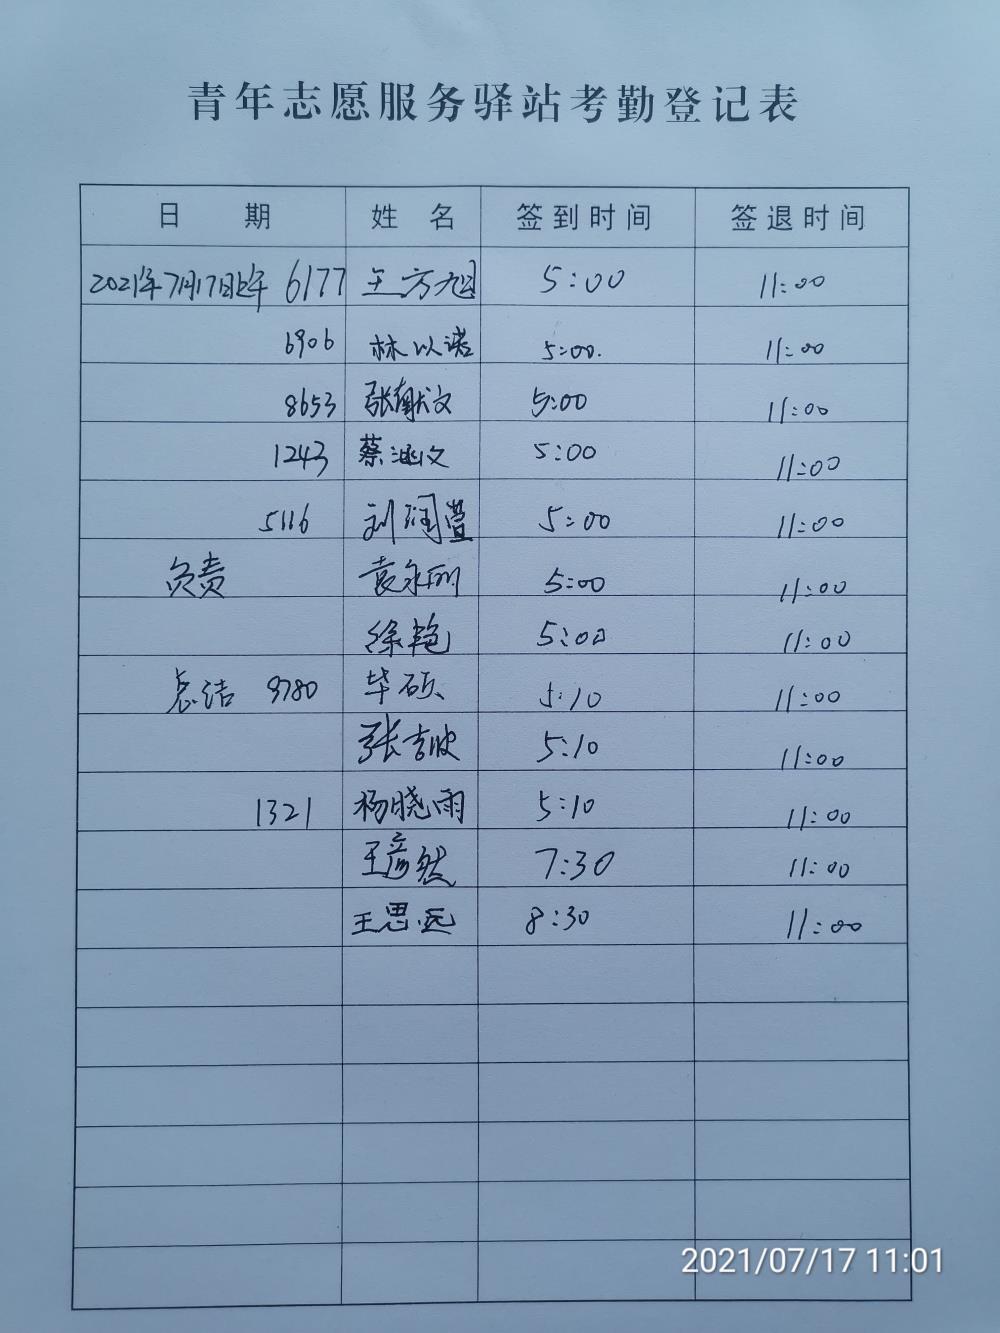 青年志愿服务驿站考勤登记表
日 期 姓 名 签到时间 签退时间
2021年7月17日上午 6177 王方旭 5:00 11:00
6906 林以诺 5:00. 11:00
8653 张献文 5:00 11:00
1243 蔡涵文 5:00 11:00
5116 刘润萱 5:00 11:00
负责 袁永丽 5:00 11:00
徐艳 5:00 11:00
总结 9780 毕硕 5:10 11:00
张吉 5:10 11:00
1321 杨晓雨 5:10 11:00
王彦然 7:30 11:00
王思远 8:30 11:00
2021/07/17 11:01